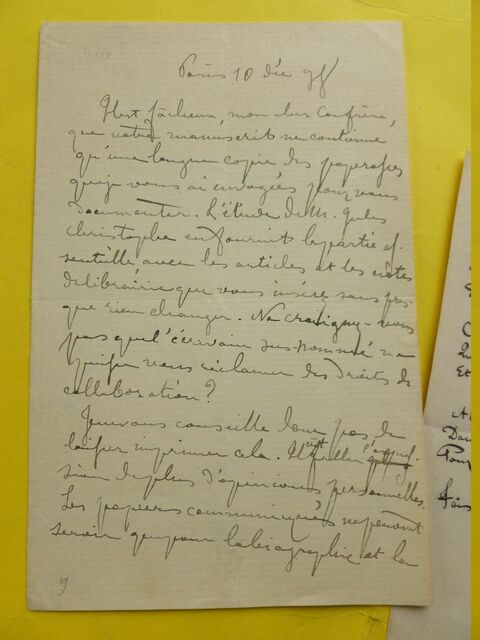 Paris 10 déc 98
Il est fâcheux, mon cher Confrère,
que votre manuscrit ne contienne
qu'une longue copie des paperasses
que je vous ai envoyées pour vous
documenter. L'étude de M. Jules
Christophe en fournit la partie es-
sentielle avec les articles et les
de librairie que vous insérez sans pres-
que rien changer. Ne craignez-vous
pas que l'écrivain sus-nommé ne
puisse vous réclamer des droits de
collaboration?
Je ne vous conseille donc pas de
laisser imprimer cela. Il fallait l'expres-
sion de plus d'opinions personnelles.
Les papiers communiqués ne peuvent
servir que pour la biographie et la